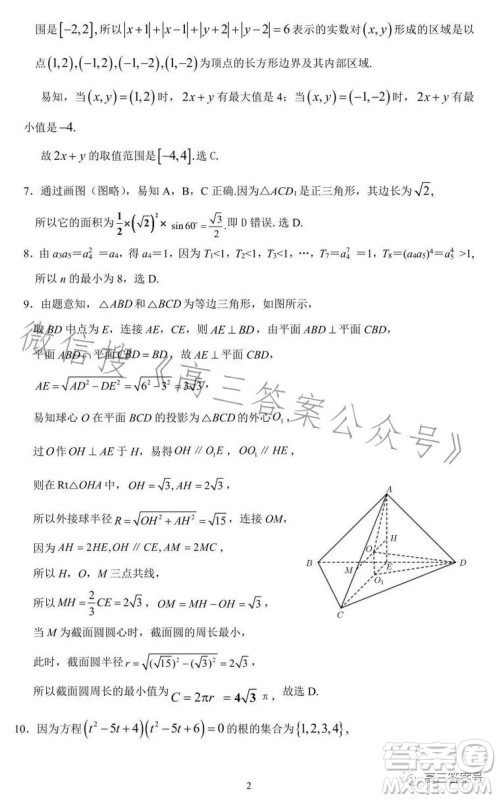 围是[-2,2],所以|x+1|+|x-1|+|y+2|+|y-2|=6表示的实数对(x,y)形成的区域是以
点(1,2),(-1,2),(-1,-2),(1,-2)为顶点的长方形边界及其内部区域.
易知，当(x,y)=(1,2)时，2x+y有最大值是4；当(x,y)=(-1,-2)时，2x+y有最
小值是-4.
故2x+y的取值范围是[-4,4].选C.
7．通过画图（图略），易知A、B、C正确.因为△ACD₁是正三角形，其边长为√2,
所以它的面积为1/2×(√2)²×sin60°=√3/2.即D错误.选D.
8．由a₃a₅=a₄²=a₄，得a₄=1，因为T₁<1，T₂<1，…，T₇=a₄⁷=1，T₈=(a₄a₅)⁴=a₅⁴>1，
所以n的最小为8，选D.
9．由题意知，△ABD和△BCD为等边三角形，如图所示，
取BD中点为E，连接AE，CE，则AE⊥BD，由平面ABD⊥平面BCD，
平面ABD∩平面CBD=BD，故AE⊥平面CBD，
AE=√(AD²-DE²)=√(6²-3²)=3√3，
易知球心O在平面BCD的投影为△BCD的外心O₁，
过O作OH⊥AE于H，易得OH∥O₁E，OO₁∥HE，
则在Rt△OHA中，OH=√3，AH=2√3，
所以外接球半径R=√(OH²+AH²)=√15，连接OM，
因为AH=2HE,OH∥CE，AM=2MC，
所以H，O，M三点共线，
所以MH=2/3CE=2√3，OM=MH-OH=√3，
当M为截面圆圆心时，截面圆的周长最小，
此时，截面圆半径r=√((√15)²-(√3)²)=2√3，
所以截面圆周长的最小值为C=2πr=4√3π，故选D.
A
H
O
B
M
E
D
O₁
C
10．因为方程(t²-5t+4)(t²-5t+6)=0的根的集合为{1,2,3,4}，
2
微信搜《高三答案公众号》
答案圈
高三答案号
MXQE.COM